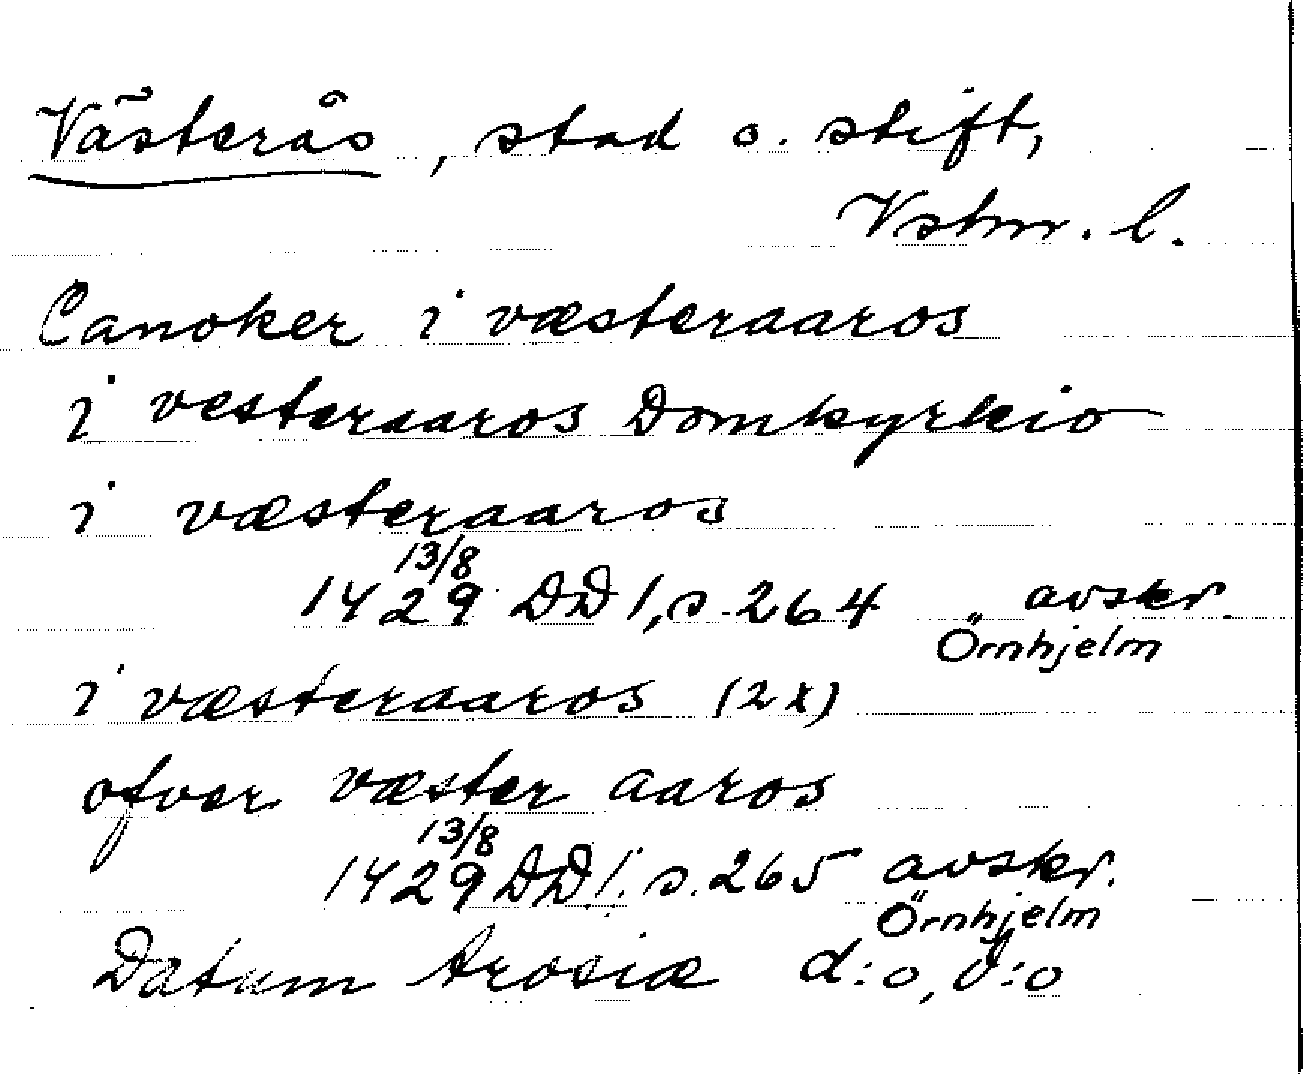 Västerås, stad o. stift,
Vstm. l.
Canoker i væsteraaros
i vesteraaros Domkyrkio
i væsteraaros
13/8
1429 DD 1, s. 264 avskr.
Örnhjelm
i væsteraaros (2x)
ofver væster aaros
13/8
1429 DD 1. s. 265 avskr.
Örnhjelm
Datum Arosiæ d:o, d:o